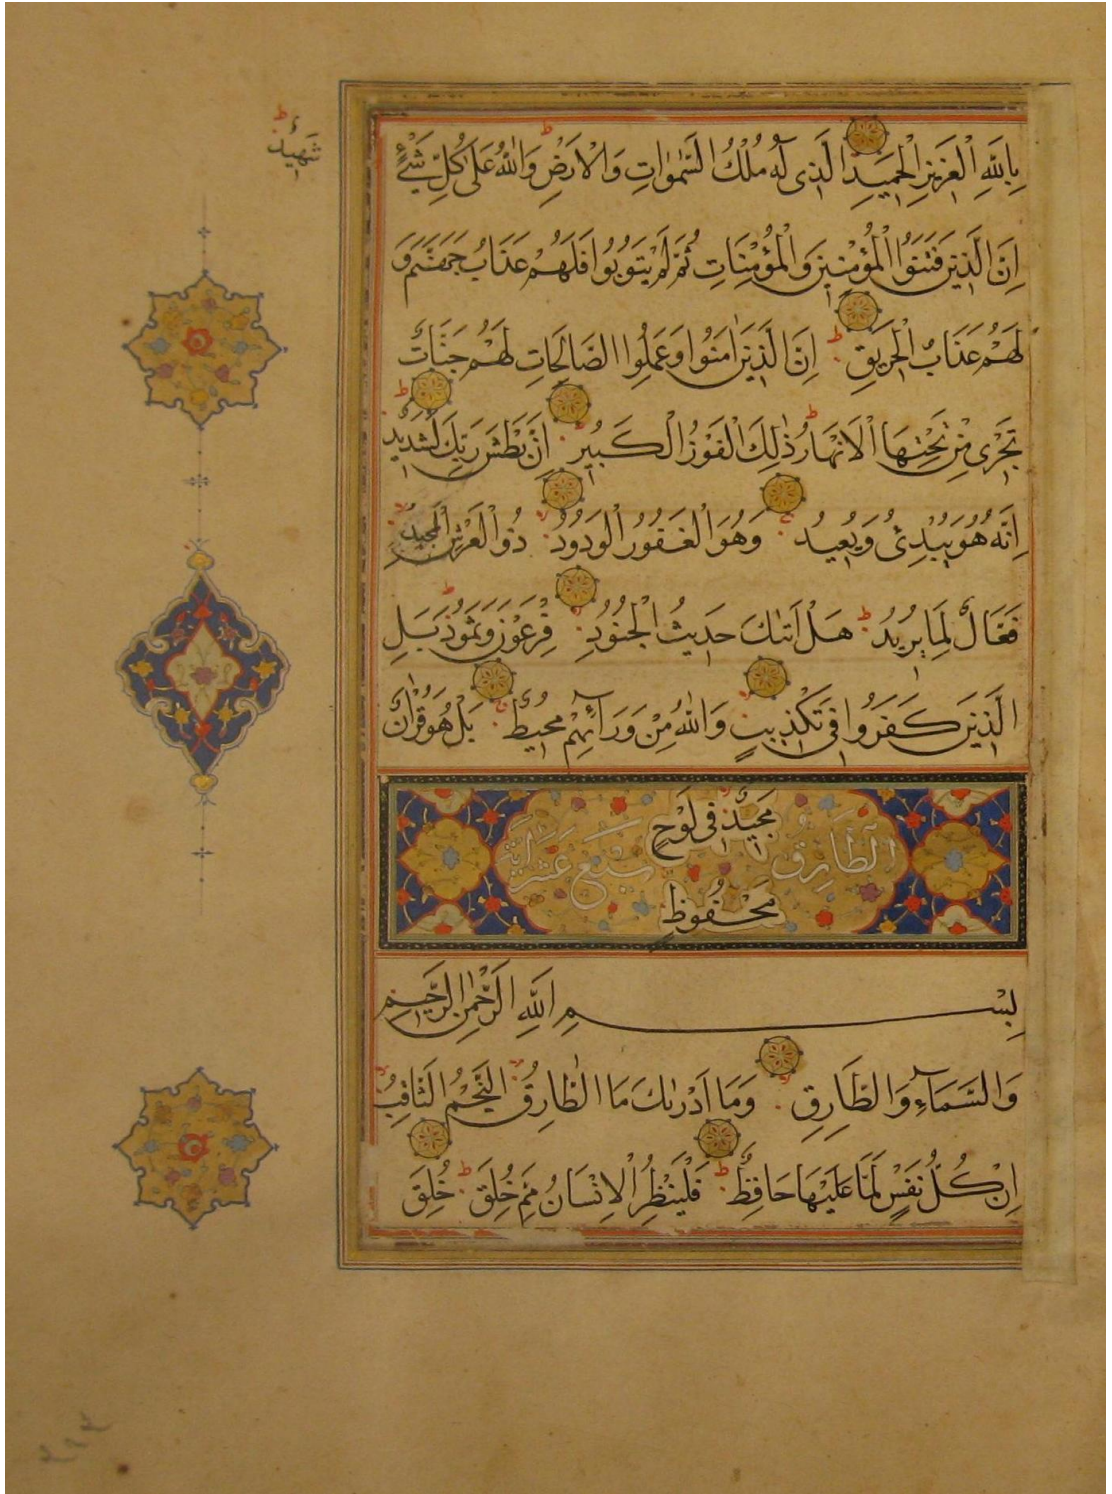 بِاللَّهِ الْعَزِيزِ الْحَمِيدِ الَّذِى لَهُ مُلْكُ السَّمٰوَاتِ وَالْاَرْضِ ط وَاللَّهُ عَلَى كُلِّ شَىْءٍ
شَهِيدٌ ط
اِنَّ الَّذِينَ فَتَنُوا الْمُؤْمِنِينَ وَالْمُؤْمِنَاتِ ثُمَّ لَمْ يَتُوبُوا فَلَهُمْ عَذَابُ جَهَنَّمَ وَ
لَهُمْ عَذَابُ الْحَرِيقِ ط اِنَّ الَّذِينَ اٰمَنُوا وَعَمِلُوا الصَّالِحَاتِ لَهُمْ جَنَّاتٌ
تَجْرِى مِنْ تَحْتِهَا الْاَنْهَارُ ط ذٰلِكَ الْفَوْزُ الْكَبِيرُ ط اِنَّ بَطْشَ رَبِّكَ لَشَدِيدٌ ط
اِنَّهُ هُوَ يُبْدِئُ وَيُعِيدُ ج وَهُوَ الْغَفُورُ الْوَدُودُ لا ذُو الْعَرْشِ الْمَجِيدُ لا
فَعَّالٌ لِمَا يُرِيدُ ط هَلْ اَتٰىكَ حَدِيثُ الْجُنُودِ لا فِرْعَوْنَ وَثَمُودَ ط بَلِ
الَّذِينَ كَفَرُوا فِى تَكْذِيبٍ لا وَاللَّهُ مِنْ وَرَآئِهِمْ مُحِيطٌ ج بَلْ هُوَ قُرْاٰنٌ
مَجِيدٌ لا فِى لَوْحٍ
الطَّارِقِ سَبْعَ عَشَرَ اٰيَة
مَحْفُوظٍ
بِسْمِ اللَّهِ الرَّحْمٰنِ الرَّحِيمِ
وَالسَّمَآءِ وَالطَّارِقِ لا وَمَا اَدْرٰىكَ مَا الطَّارِقُ لا النَّجْمُ الثَّاقِبُ لا
اِنْ كُلُّ نَفْسٍ لَمَّا عَلَيْهَا حَافِظٌ ط فَلْيَنْظُرِ الْاِنْسَانُ مِمَّ خُلِقَ ط خُلِقَ